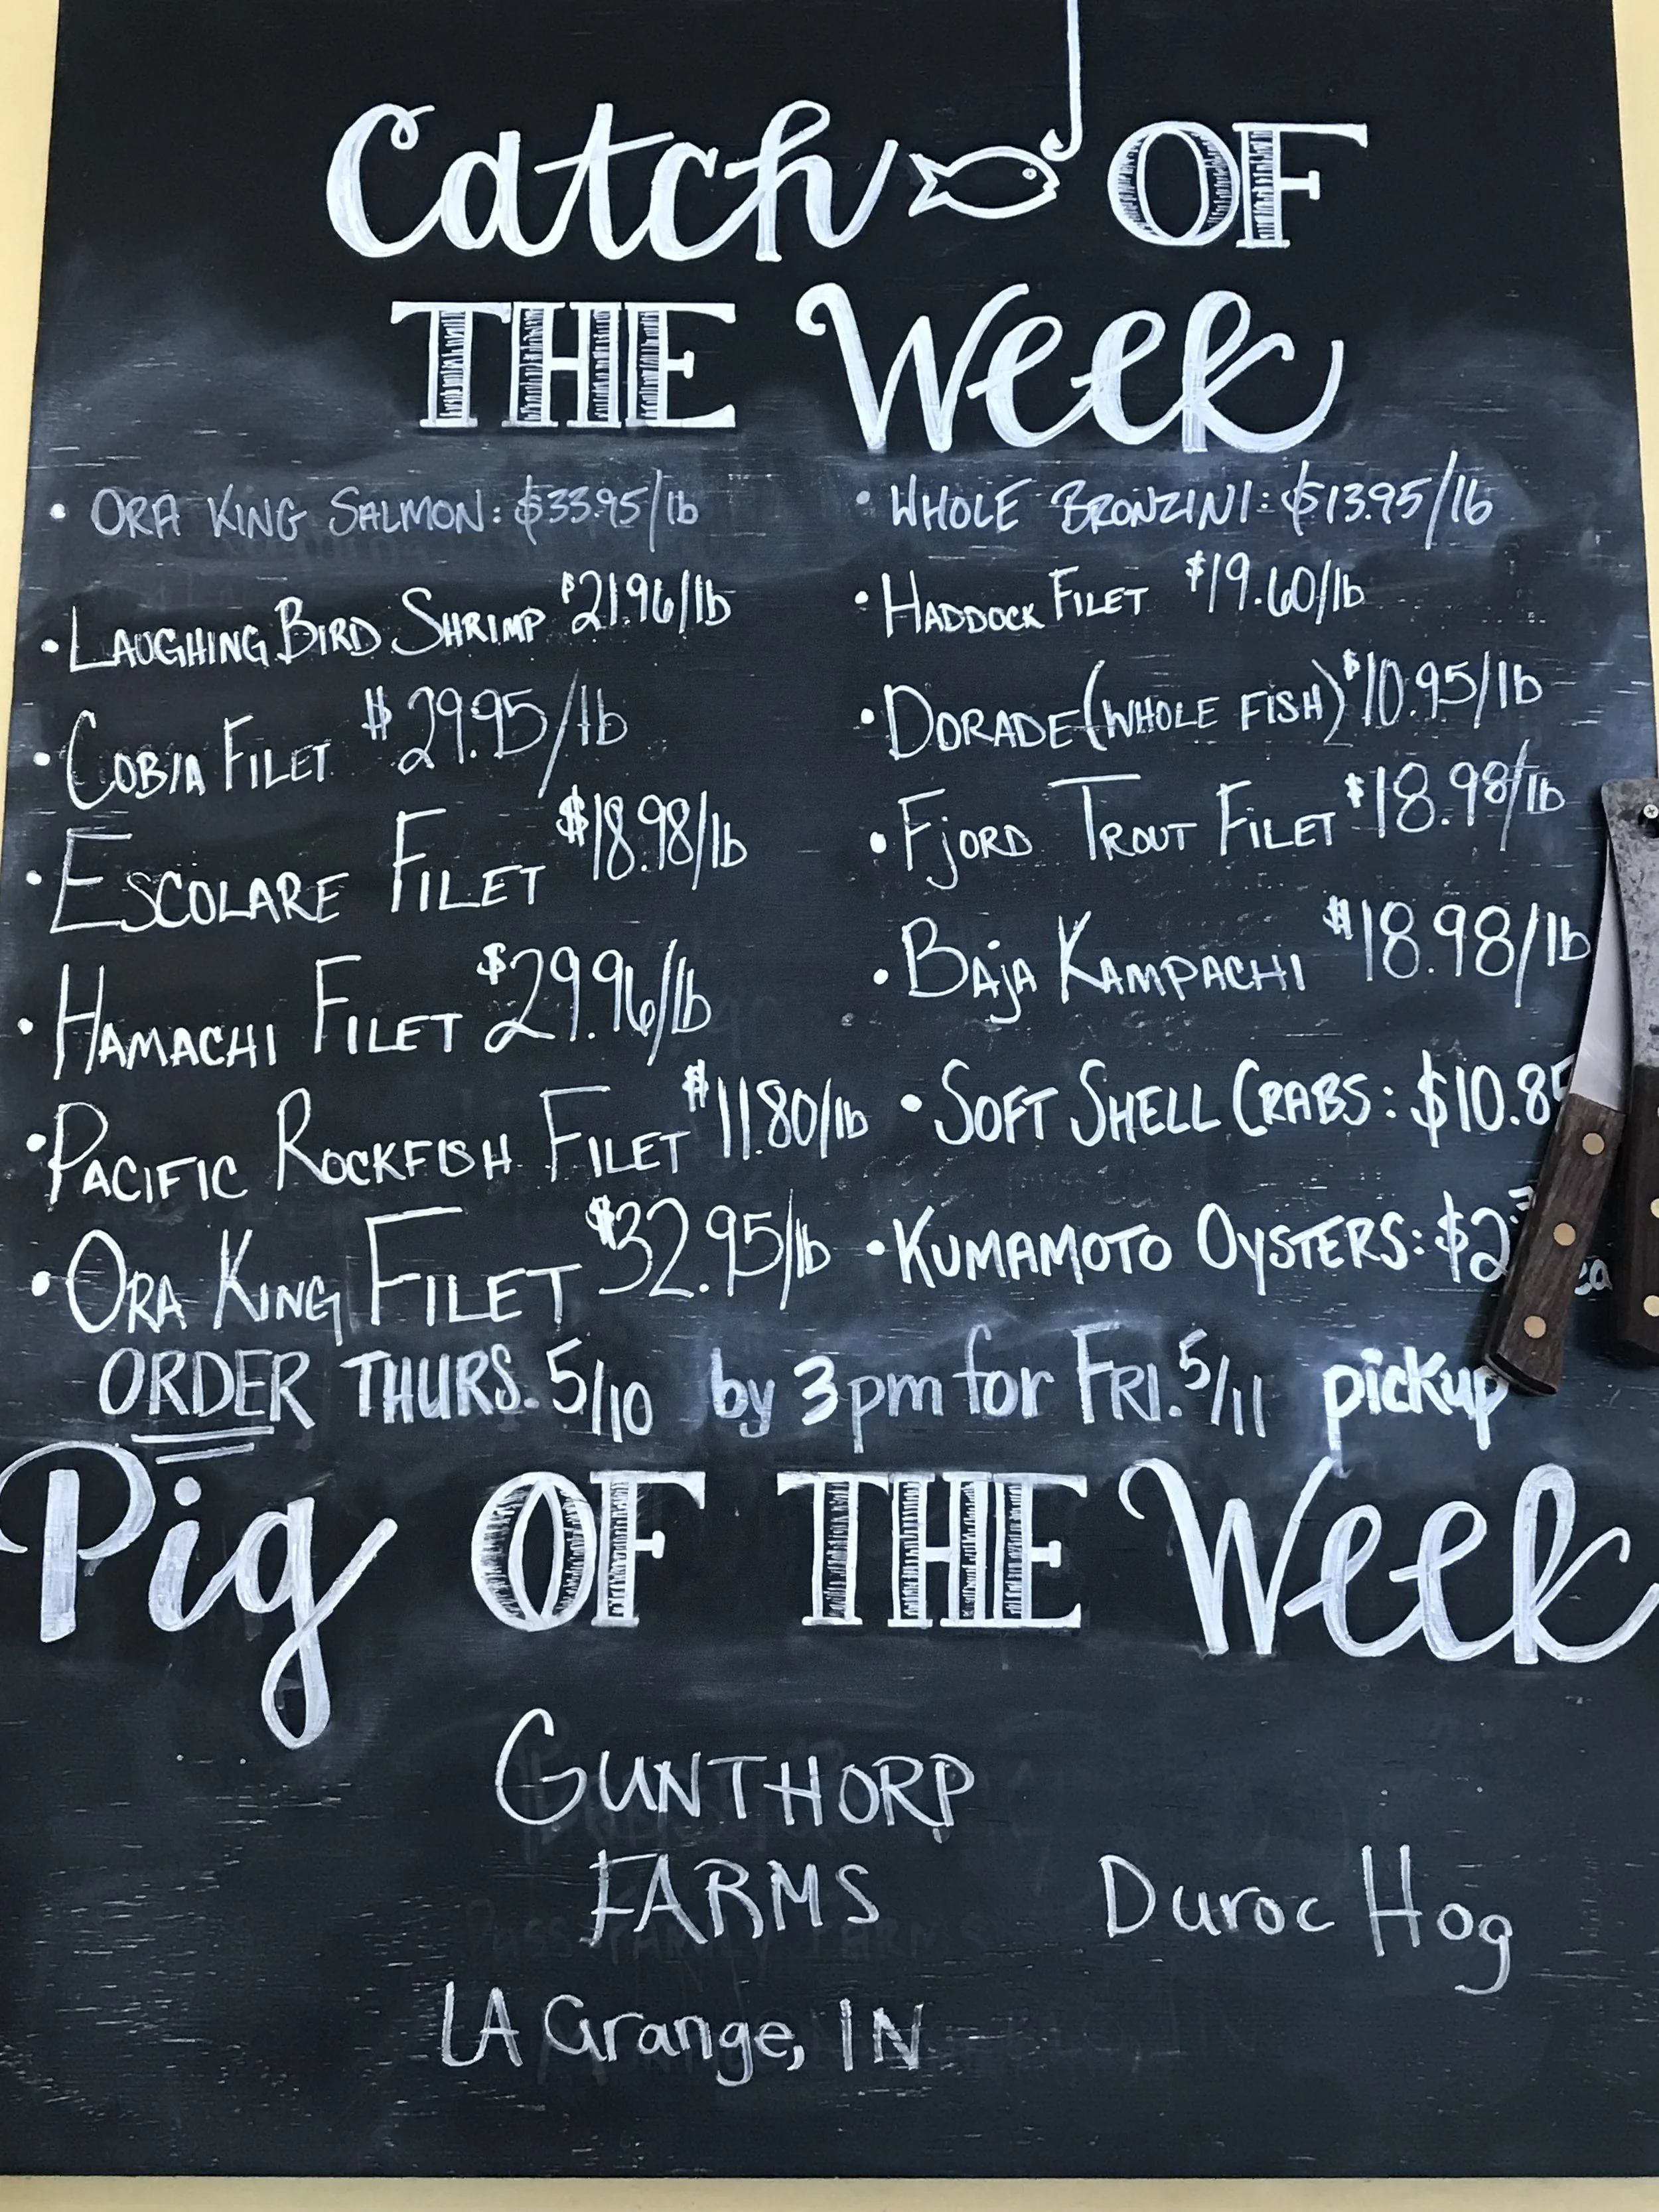 Catch OF
THE Week
• ORA KING SALMON: $33.95/lb
• LAUGHING BIRD SHRIMP $21.96/lb
• COBIA FILET $29.95/lb
• ESCOLARE FILET $18.98/lb
• HAMACHI FILET $29.96/lb
• PACIFIC ROCKFISH FILET $11.80/lb
• ORA KING FILET $32.95/lb
• WHOLE BRONZINI: $13.95/lb
• HADDOCK FILET $19.60/lb
• DORADE (WHOLE FISH) $10.95/lb
• FJORD TROUT FILET $18.98/lb
• BAJA KAMPACHI $18.98/lb
• SOFT SHELL CRABS: $10.85
• KUMAMOTO OYSTERS: $2
ORDER THURS. 5/10 by 3pm for FRI. 5/11 pickup
Pig OF THE Week
GUNTHORP
FARMS
Duroc Hog
LA Grange, IN